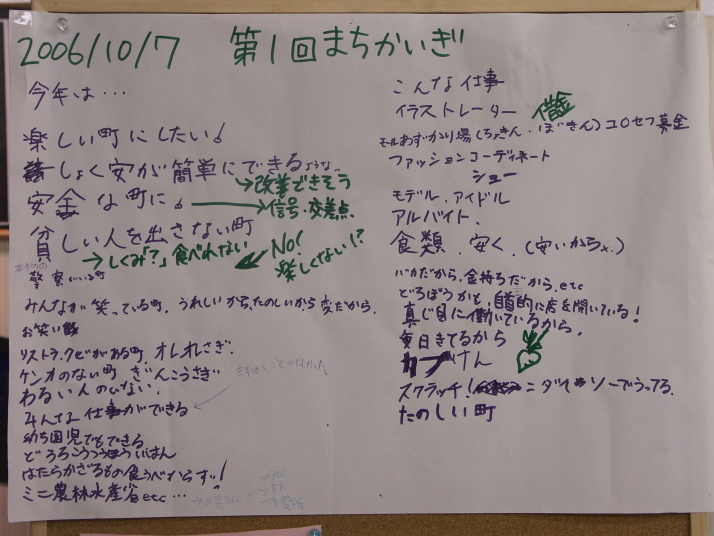 2006/10/7 第1回まちかいぎ
今年は…
楽しい町にしたい!
しょく安が簡単にできるような..
→改善できそう
安全な町に!
→信号・交差点
貧しい人を出さない町
→しくみ「?」食べれない
No!
楽しくない!?
警察がいる町
みんなが笑っている町。うれしいから、たのしいから、変だから、
お笑い
リストラ、クビがある町、オレオレさぎ、
ケンカのない町 ぎんこうさぎ
わるい人のいない、
みんな仕事ができる
幼ち園児でもできる
はたらかざるもの食うべからず!
ミニ農林水産省etc…
こんな仕事
イラストレーター
借金
モールあずかり場(ちょきん・ぼきん)ユロセフ募金
ファッションコーディネート
ショー
モデル、アイドル
アルバイト、
食類、安く、(安いから
バカだから、金持ちだから、etc
どろぼうかと、的に店を開いている!
真じ目に働いているから、
毎日きてるから
カブけん
スクラッチ! ソーでうってる、
たのしい町